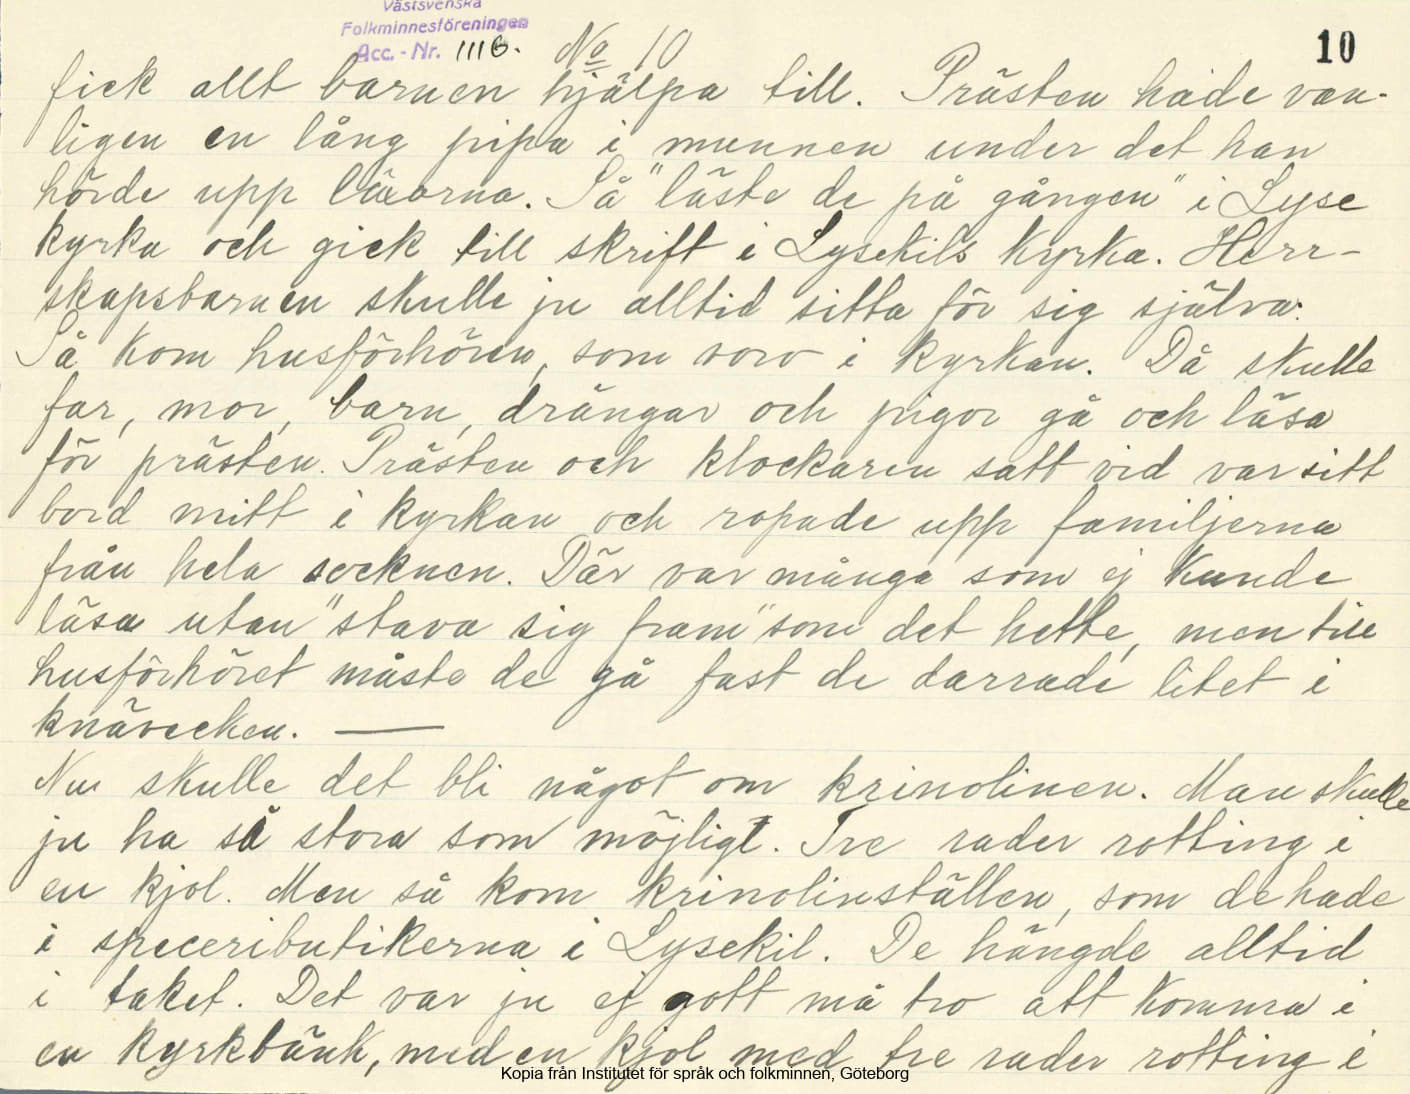 Västsvenska
Folkminnesföreningen
Acc. - Nr. 1116. No 10
10
fick allt barnen hjälpa till. Prästen hade van-
ligen en lång pipa i munnen under det han
hörde upp läxorna. Så "läste de på gången" i Lyse
kyrka och gick till skrift i Lysekils kyrka. Herr-
skapsbarnen skulle ju alltid sitta för sig själva.
Så kom husförhören, som voro i kyrkan. Då skulle
far, mor, barn, drängar och pigor gå och läsa
för prästen. Prästen och klockaren satt vid var sitt
bord mitt i kyrkan och ropade upp familjerna
från hela socknen. Där var många som ej kunde
läsa utan "stava sig fram" som det hette, men till
husförhöret måste de gå fast de darrade litet i
knävecken. —
Nu skulle det bli något om krinolinen. Man skulle
ju ha så stora som möjligt. Tre rader rotting i
en kjol. Men så kom krinolinställen, som de hade
i speceributikerna i Lysekil. De hängde alltid
i taket. Det var ju ej gott må tro att komma i
en kyrkbänk, med en kjol med tre rader rotting i
Kopia från Institutet för språk och folkminnen, Göteborg